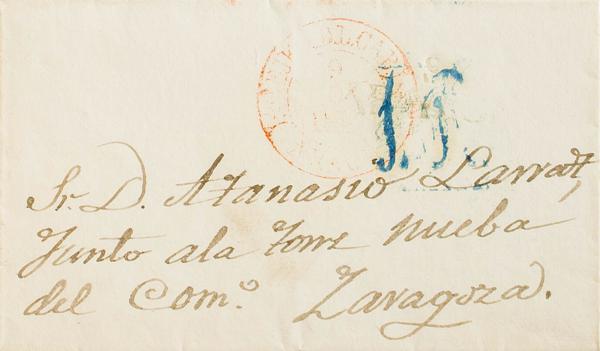 Sr. D. Atanasio Larraz,
Junto ala torre nueba
del Com.º Zaragoza.